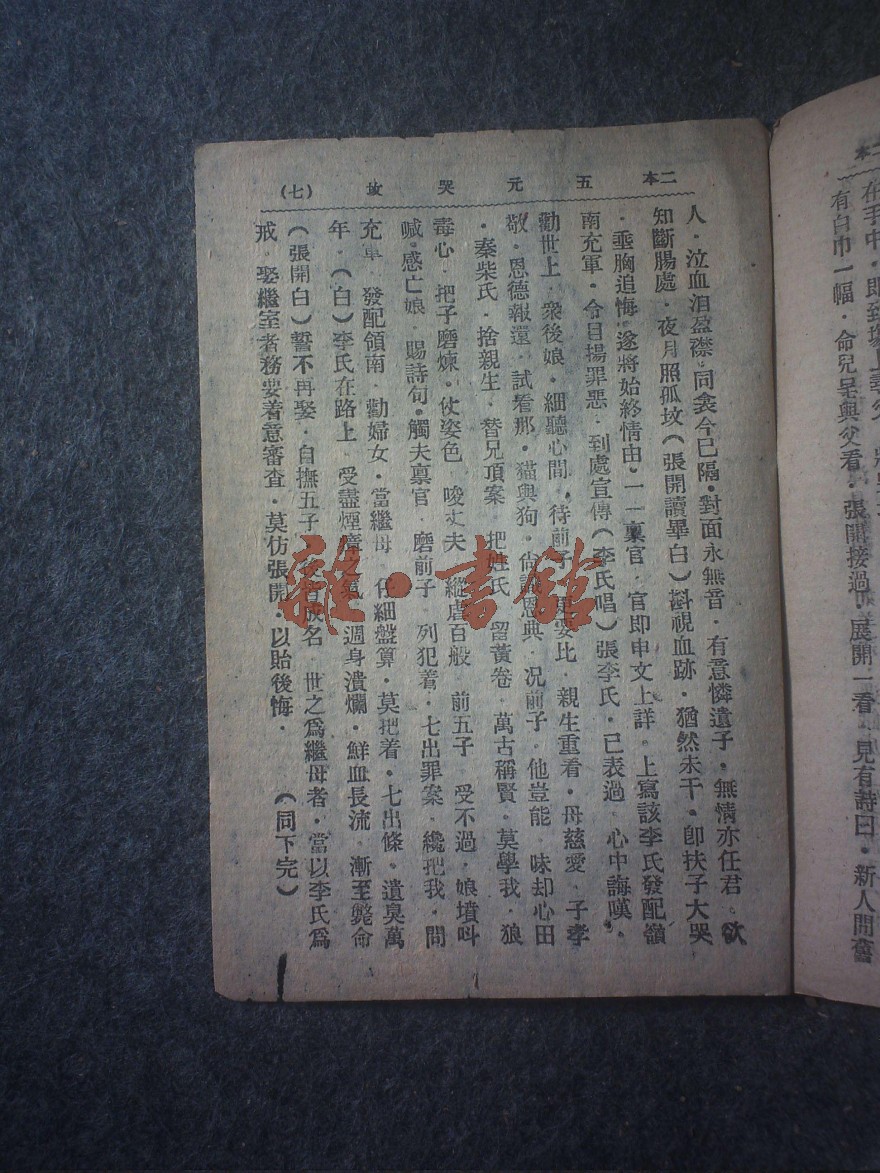 在手中·即到
有白巾一幅·命兒呈與父看·張開接過·展開一看·見有詩曰·新人間舊
二本 五元哭坟 (七)
人·泣血泪盈襟·同衾今已隔·對面永無音·有意憐遺子·無情亦任君·欲
知斷腸處·夜月照孤坟(張開讀畢白)斟視血跡·猶然未干·卽扶子大哭
·垂胸追悔·遂將始終情由·一一稟官·官即申文上詳·上寫該李氏發配嶺
南充軍·令目揚罪惡·到處宣傳(李氏唱)張李氏·已表過·心中誨嘆·
勸世上·衆後娘·細聽心間·待前子·更要比·親生重看·母慈愛·子孝
敬·恩德報還·試看那·猫與狗·尙識恩典·况前子·他豈能·昧却心田
·秦柴氏·捨親生·替兄頂案·把姓氏·留黃卷·萬古稱賢·莫學我·狼
毒心·把子磨煉·仗姿色·唆丈夫·縱虐百般·前五子·受不過·娘墳叫
喊·感亡娘·賜詩句·觸夫稟官·磨前子·列犯着·七出罪案·纔把我·問
充軍·發配領南·勸婦女·當繼母·仔細盤算·莫把着·七出條·遺臭萬
年·(白)李氏在路上·受盡煙瘴之氣·週身潰爛·鮮血長流·漸至斃命
(張開白)誓不再娶·自撫五子·後皆成名·世之爲繼母者·當以李氏爲
戒·娶繼室者務要着意審查·莫仿張開·以貽後悔· (同下完)
雜·書館